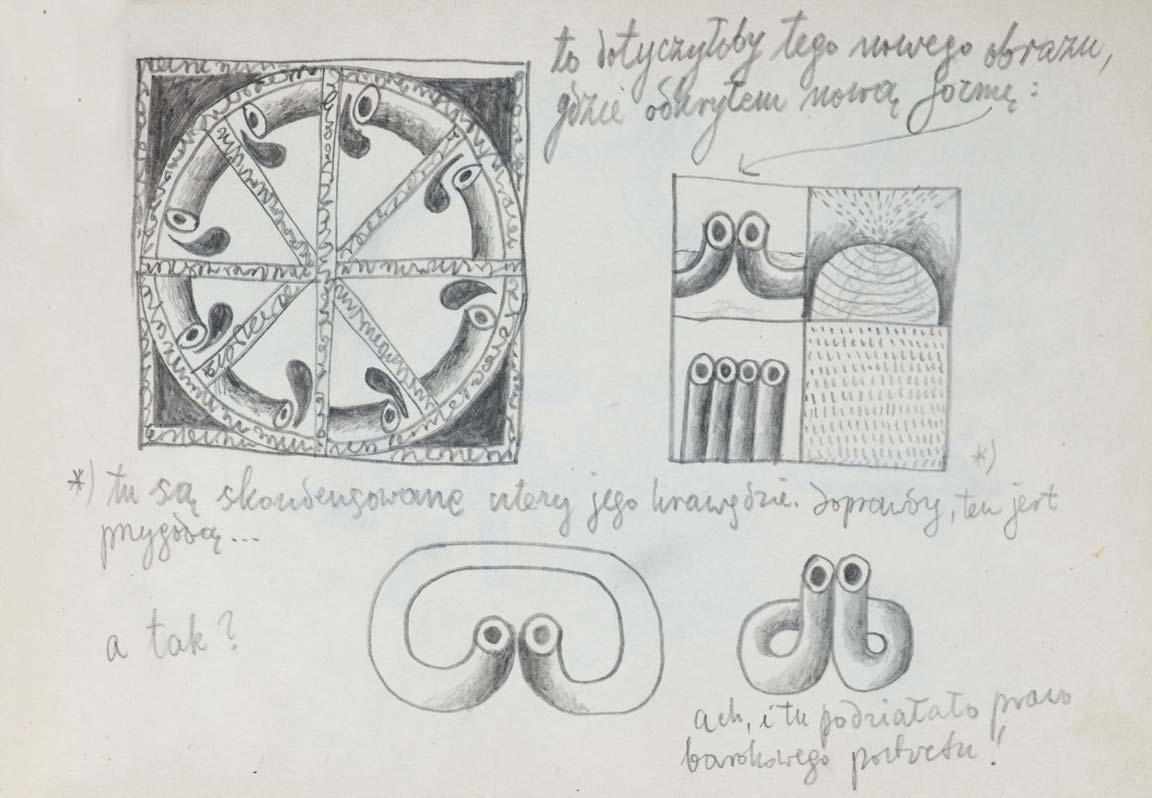 to dotyczyłoby tego nowego obrazu,
gdzie odkryłem nową formę:
*)
*) tu są skondensowane cztery jego krawędzie. doprawdy, ten jest
przygodą...
a tak?
ach, i tu podziałało prawo
barokowego portretu!